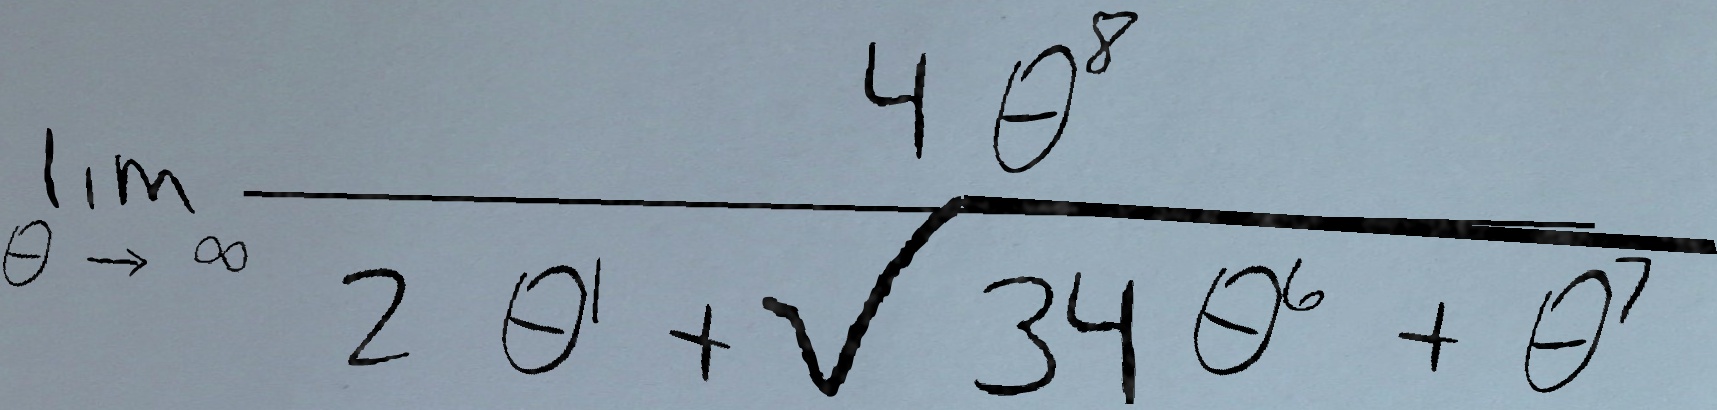 lim θ → ∞ 4 θ^8 / (2 θ^1 + √(34 θ^6 + θ^7))